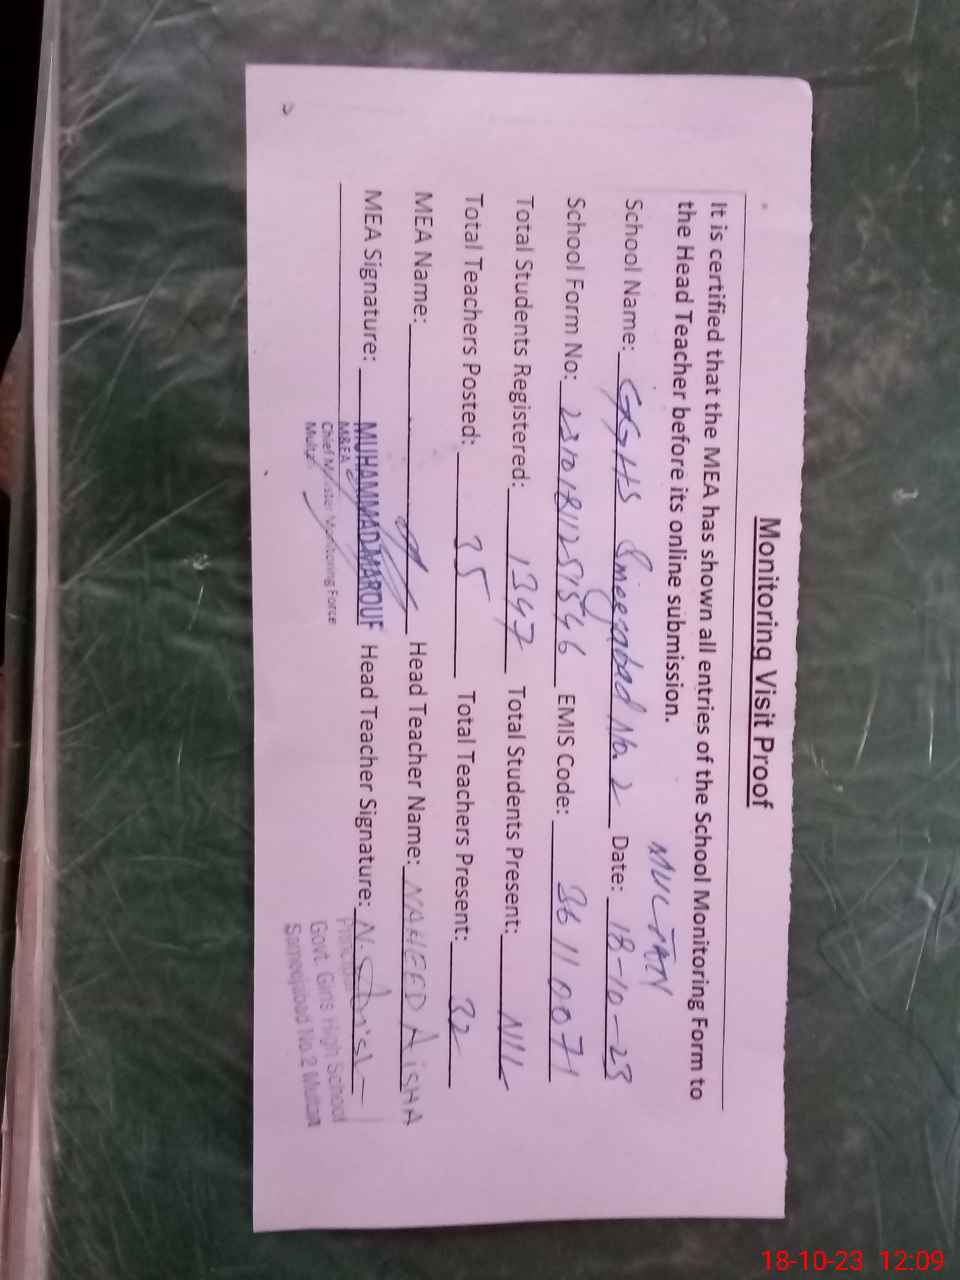 Monitoring Visit Proof
It is certified that the MEA has shown all entries of the School Monitoring Form to
the Head Teacher before its online submission.
MULTAN
School Name: GGHS Sameejabad No. 2 Date: 18-10-23
School Form No: EMIS Code: 36110071
Total Students Registered: 1347 Total Students Present: NIL
Total Teachers Posted: 35 Total Teachers Present: 32
MEA Name: Head Teacher Name: NAHEED AISHA
MEA Signature: MUHAMMAD MAROUF Head Teacher Signature:
M&EA
Chief Minister Monitoring Force
Multan
Principal
Govt. Girls High School
Sameejabad No.2 Multan
18-10-23 12:09